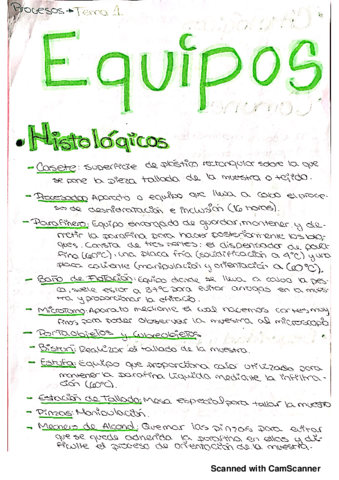 Procesos → Tema 1
Equipos
• Histológicos
- Casete: superficie de plástico rectangular sobre la que
se pone la pieza tallada de la muestra o tejido.
- Procesador: Aparato o equipo que lleva a cabo el proce-
so de deshidratación e inclusión (16 horas).
- Parafinero: Equipo encargado de guardar, mantener y de-
rretir la parafina para hacer posteriormente los blo
ques. Consta de tres zonas: el dispensador de para-
fina (60ºC), una placa fría (solidificación a 4ºC) y una
placa caliente (manipulación y orientación a 60ºC).
- Baño de Flotación: Equipo donde se lleva a cabo la pes-
ca, suele estar a 37ºC para evitar arrugas en la mues-
tra y proporcionar la
- Microtomo: Aparato mediante el cual hacemos cortes muy
finos para poder observar la muestra al microscopio
- Portaobjetos y Cubreobjetos
- Bisturí: Realizar el tallado de la muestra.
- Estufa: Equipo que proporciona calor utilizado para
mantener la parafina líquida mediante la infiltra-
ción (60ºC).
- Estación de Tallado: Mesa especial para tallar la muestra
- Pinzas: Manipulación.
- Mechero de Alcohol: Quemar las pinzas para evitar
que se quede adherida la parafina en ellas y di-
ficulte el proceso de orientación de la muestra.
Scanned with CamScanner